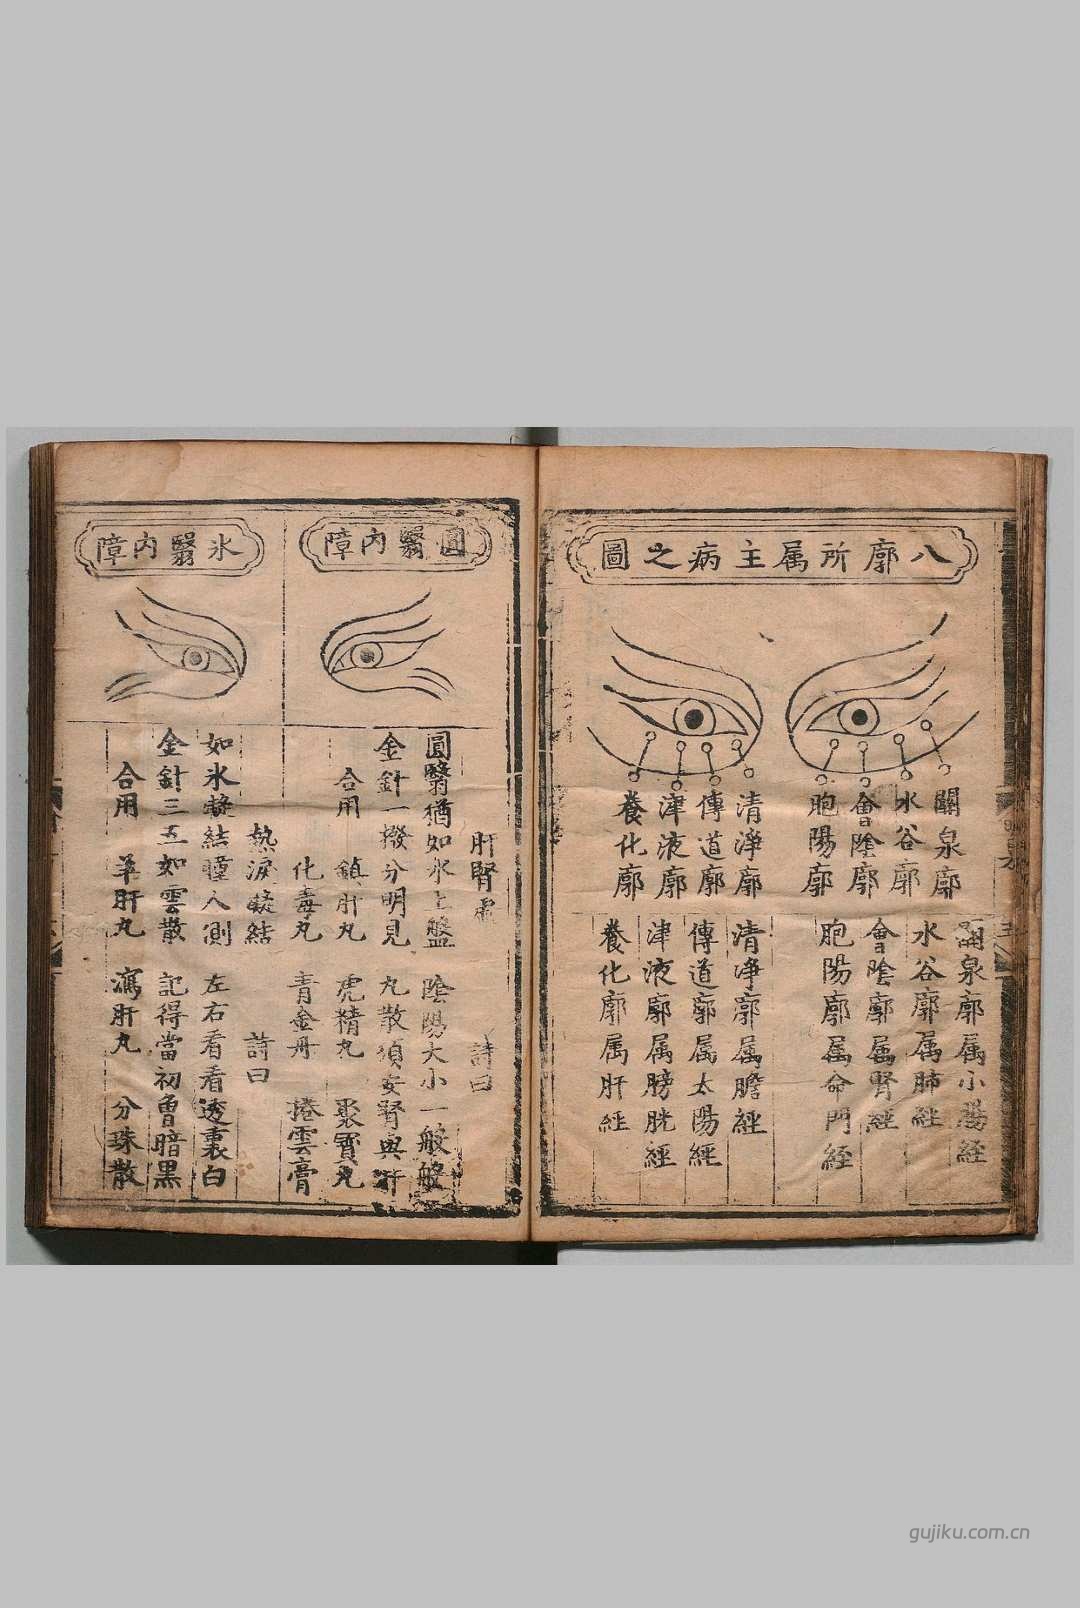 八廓所属主病之圖
關泉廓
水谷廓
會陰廓
胞陽廓
清淨廓
傳道廓
津液廓
養化廓
關泉廓属小腸経
水谷廓属肺経
會陰廓属腎経
胞陽廓属命門経
清净廓属膽経
傳道廓属太陽経
津液廓属膀胱経
養化廓属肝経
圓翳内障
肝腎虚 詩曰
圓翳猶如氷上盤 陰陽大小一般般
金針一撥分明見 丸散須安腎與肝
合用 鎮肝丸 虎精丸 聚寳丸
化毒丸 青金丹 捲雲膏
氷翳内障
熱淚凝結 詩曰
如氷凝結瞳人側 左右看看透裏白
金針三五如雲散 記得當初曾暗黑
合用 羊肝丸 瀉肝丸 分珠散
gujiku.com.cn